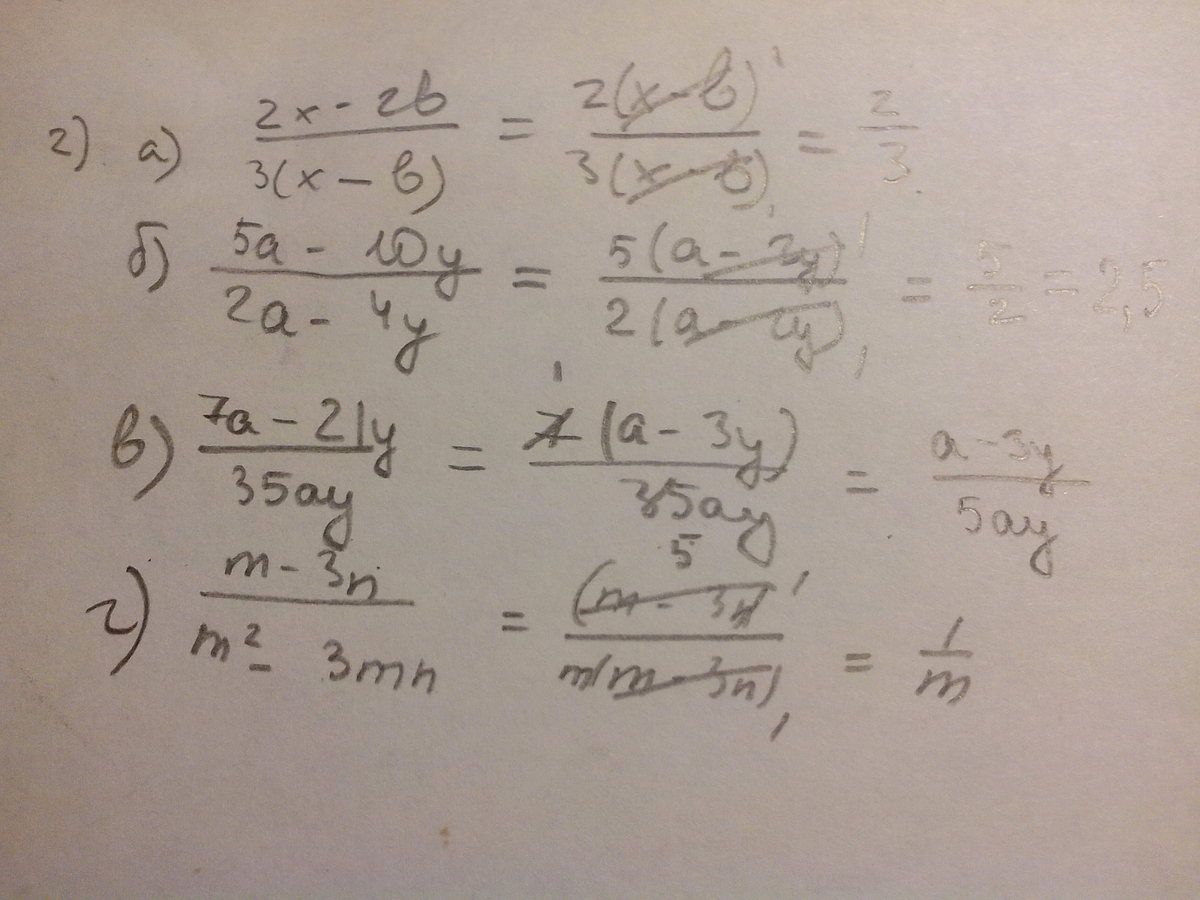 2) а) (2x - 2b)/(3(x - b)) = (2(x - b))/(3(x - b)) = 2/3
б) (5a - 10y)/(2a - 4y) = (5(a - 2y))/(2(a - 2y)) = 5/2 = 2,5
в) (7a - 21y)/(35ay) = (7(a - 3y))/(35ay) = (a - 3y)/(5ay)
г) (m - 3n)/(m² - 3mn) = (m - 3n)/(m(m - 3n)) = 1/m